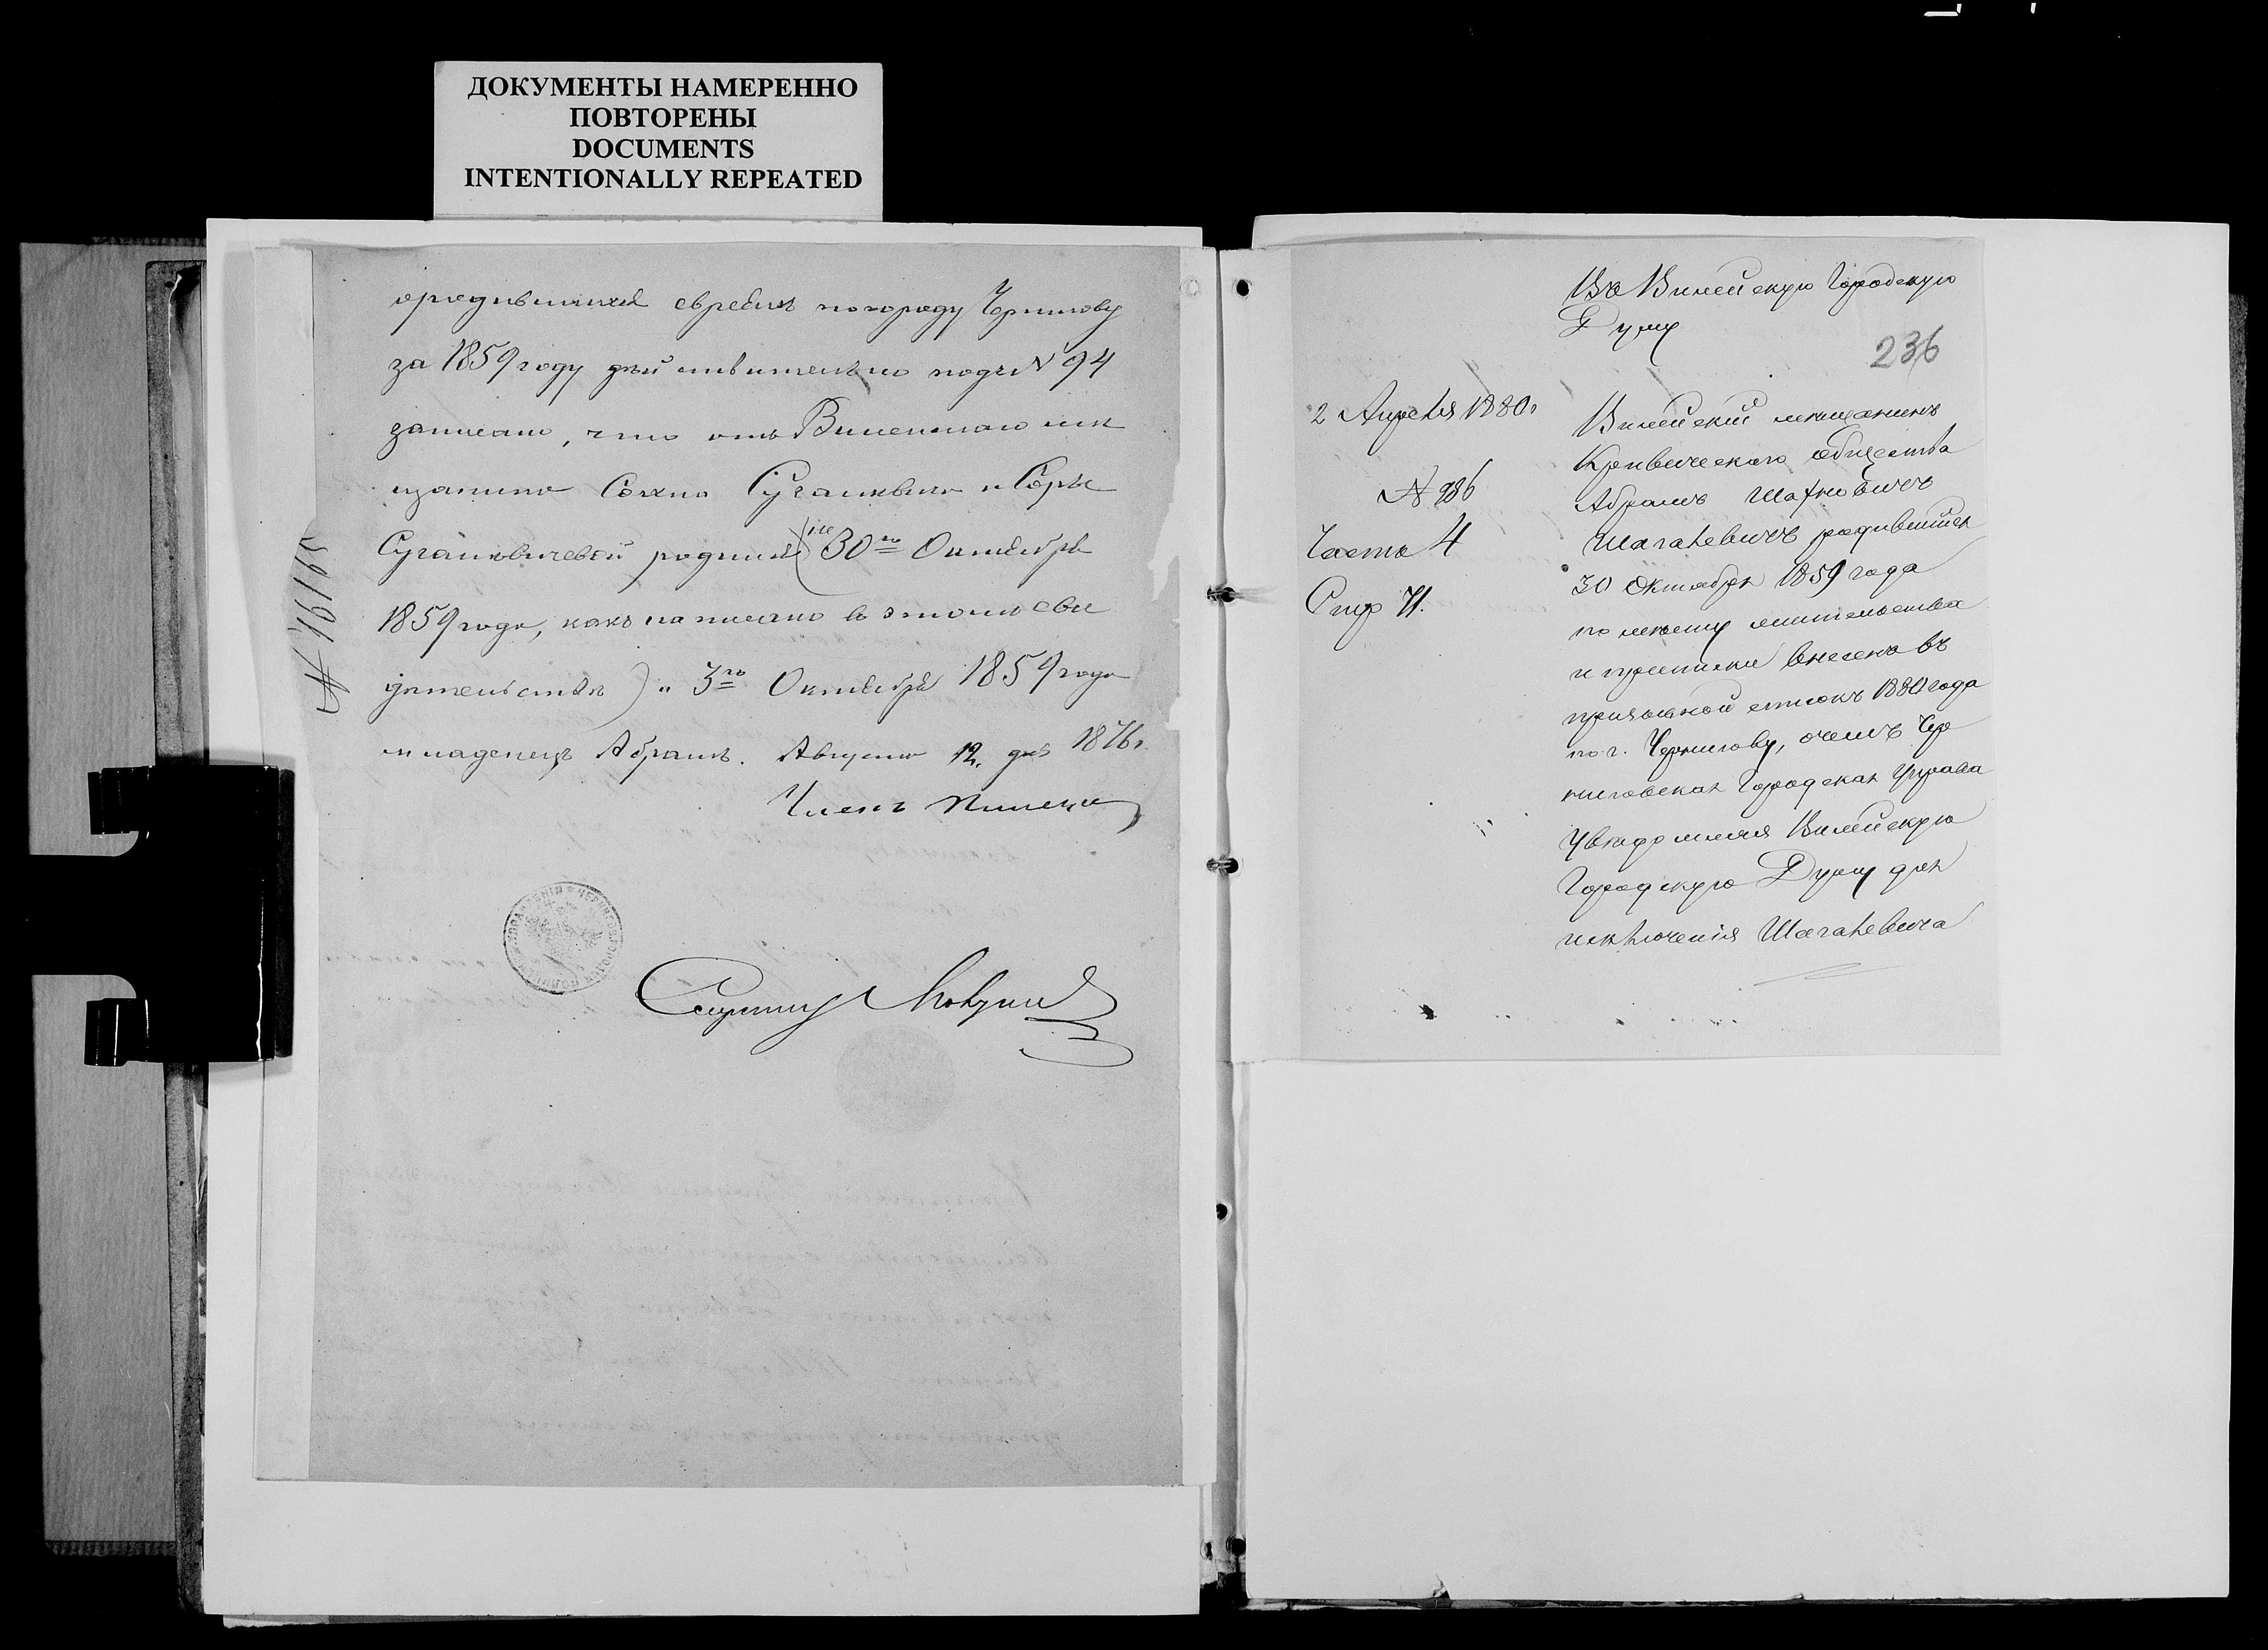 ДОКУМЕНТЫ НАМЕРЕННО
ПОВТОРЕНЫ
DOCUMENTS
INTENTIONALLY REPEATED
евреямъ по городу Чернигову
за 1859 году действительно подъ № 94
записано, что отъ
и Соры
30го Октября
1859 года, какъ написано въ этомъ сви
детельстве) " 3го Октября 1859 года
младенецъ Абрамъ. Августа 12. дня 1876 г.
Членъ
№ 16165
Въ Вилейскую Городскую
Думу
236
2 Апреля 1880 г
№ 986
Часть 4
Стр 71.
Вилейский мещанинъ
Кривического общества
Абрамъ Шахновичъ
Шагалевичъ родившийся
30 Октября 1859 года
по месту жительства
и приписки внесенъ въ
призывной списокъ 1880 года
по г. Чернигову, о чемъ Чер
ниговская Городская Управа
уведомляя Вилейскую
Городскую Думу для
исключенія Шагалевича